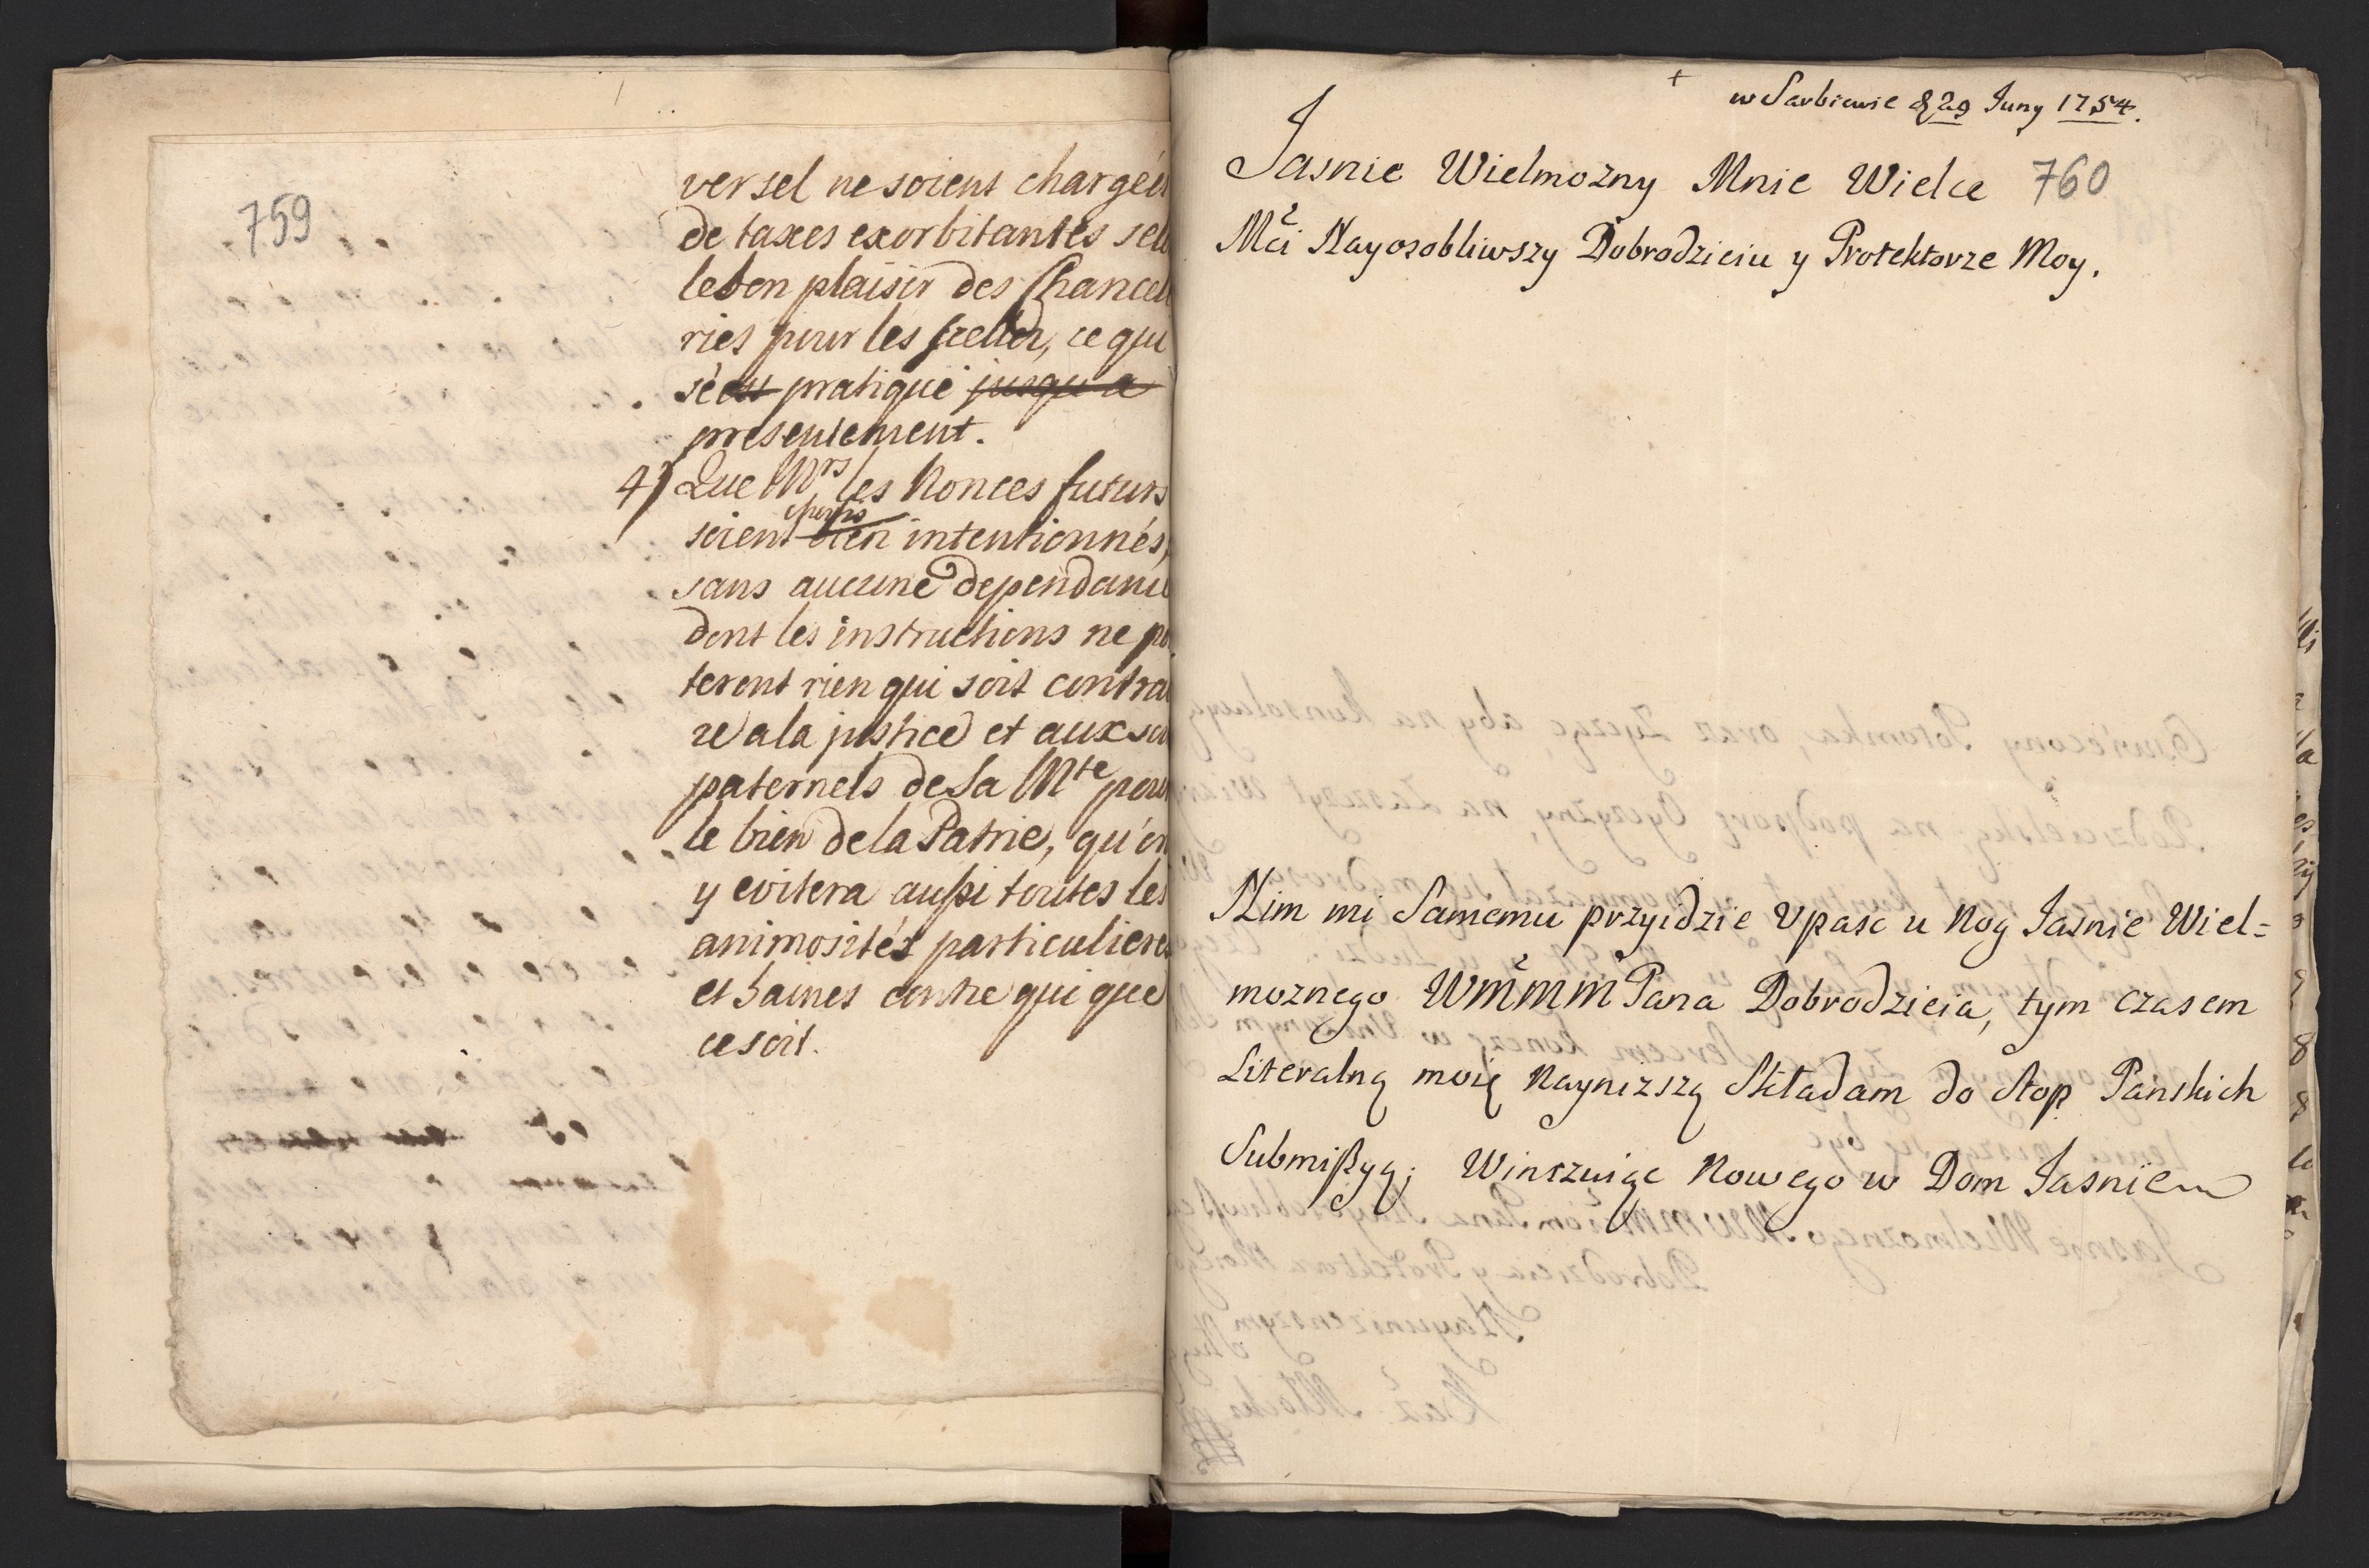 759
versel ne soient chargées
de taxes exorbitantes sel
le bon plaisir des Chancel
ries pour les sceller, ce qui
se est pratique jusqu a
presentement.
4) Que Mrs les Nonces futurs
soient bien intentionnés,
sans aucune dependance
dont les instructions ne po
teront rien qui soit contra
re a la justice et aux soi
paternels de Sa Mte pour
le bien de la Patrie, qu'on
y evitera aussi toutes les
animosités particulieres
et haines contre qui que
ce soit.
w Sarbiewie d 29 Juny 1754.
760
Jasnie Wielmozny Mnie Wielce
Mći Nayosobliwszy Dobrodzieiu y Protektorze Moy.
Nim mi Samemu przyidzie Upasc u Nog Jasnie Wiel=
moznego WMMM Pana Dobrodzieia, tym czasem
Literalną moię Nayniższą Składam do Stop Panskich
Submißyą; Winszuiąc Nowego w Dom Jasnie